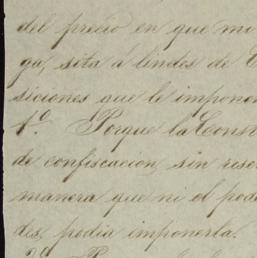 del precio en que mi
ga, sita á lindes de
siciones que le imponen
1º. Porque la Const
de confiscacion, sin rese
manera que ni el pode
des, podia imponerla.